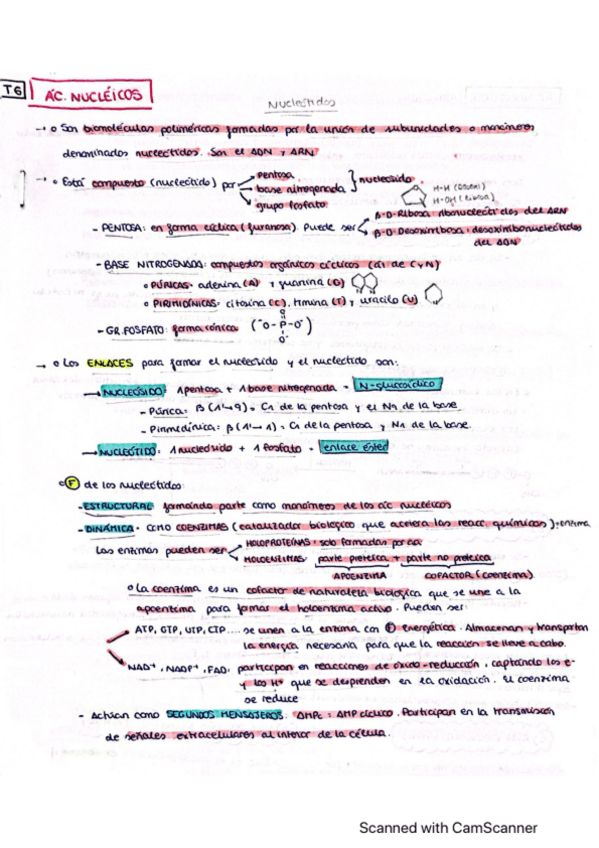 T6 ÁC. NUCLÉICOS
Nucleótidos
→ o Son biomoléculas poliméricas formadas por la unión de subunidades o monómeros
denominados nucleótidos. Son el ADN y ARN
→ o Está compuesto (nucleótido) por pentosa
base nitrogenada } nucleósido
grupo fosfato
H-H (Desoxi)
H-OH (Ribosa)
- PENTOSA: en forma cíclica (furanosa). Puede ser
β-D-Ribosa: ribonucleótidos del ARN
β-D-Desoxirribosa: desoxirribonucleótidos
del ADN
- BASE NITROGENADA: compuestos orgánicos cíclicos (de C y N)
o PÚRICAS: adenina (A) y guanina (G)
o PIRIMIDÍNICAS: citosina (C), timina (T) y uracilo (U)
- GR. FOSFATO: forma iónica (⁻O-P-O⁻)
O
O⁻
→ o Los ENLACES para formar el nucleósido y el nucleótido son:
→ NUCLEÓSIDO: 1 pentosa + 1 base nitrogenada = N-glucosídico
- Púrica: β (1'→9) = C1 de la pentosa y el N9 de la base.
- Pirimidínica: β (1'→1) = C1 de la pentosa y N1 de la base.
→ NUCLEÓTIDO: 1 nucleósido + 1 fosfato = enlace éster
o F de los nucleótidos:
- ESTRUCTURAL: formando parte como monómeros de los ác nucleicos
- DINÁMICA: como COENZIMAS (catalizador biológico que acelera las reacc. químicas) = enzima
Las enzimas pueden ser
HOLOPROTEÍNAS: solo formadas por
HOLOENZIMAS: parte proteica + parte no proteica
APOENZIMA COFACTOR (COENZIMA)
o La coenzima es un cofactor de naturaleza biológica que se une a la
apoenzima para formar el holoenzima activo. Pueden ser:
ATP, GTP, UTP, CTP.... se unen a la enzima con F energética. Almacenan y transportan
la energía necesaria para que la reacción se lleve a cabo.
NAD⁺, NADP⁺, FAD: participan en reacciones de óxido-reducción, captando los e-
y los H⁺ que se desprenden en la oxidación. El coenzima
se reduce
- Actúan como SEGUNDOS MENSAJEROS. AMPc = AMP cíclico. Participan en la transmisión
de señales extracelulares al interior de la célula.
Scanned with CamScanner